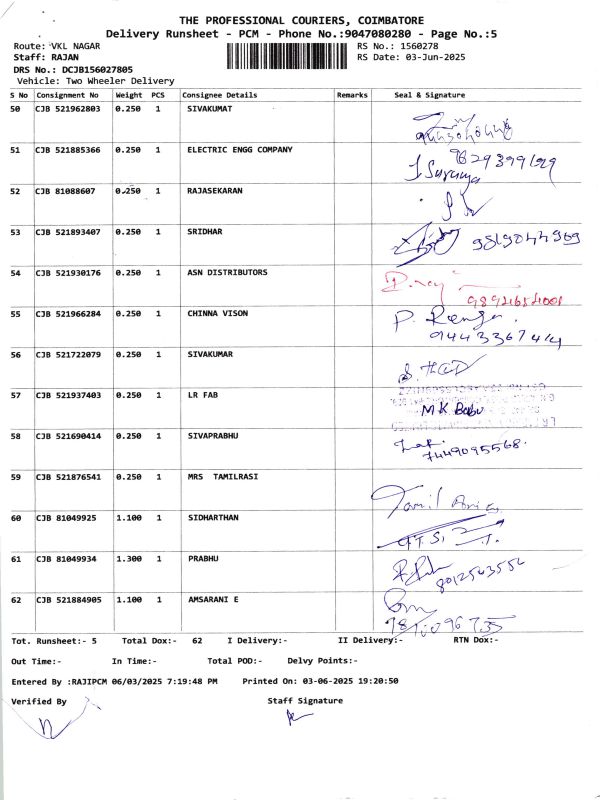 THE PROFESSIONAL COURIERS, COIMBATORE
Delivery Runsheet - PCM - Phone No.:9047080280 - Page No.:5
Route: VKL NAGAR RS No.: 1560278
Staff: RAJAN RS Date: 03-Jun-2025
DRS No.: DCJB156027805
Vehicle: Two Wheeler Delivery
S No Consignment No Weight PCS Consignee Details Remarks Seal & Signature
50 CJB 521962803 0.250 1 SIVAKUMAT
51 CJB 521885366 0.250 1 ELECTRIC ENGG COMPANY
52 CJB 81088607 0.250 1 RAJASEKARAN
53 CJB 521893407 0.250 1 SRIDHAR
54 CJB 521930176 0.250 1 ASN DISTRIBUTORS
55 CJB 521966284 0.250 1 CHINNA VISON
56 CJB 521722079 0.250 1 SIVAKUMAR
57 CJB 521937403 0.250 1 LR FAB M K Babu
58 CJB 521690414 0.250 1 SIVAPRABHU 7449095568
59 CJB 521876541 0.250 1 MRS TAMILRASI
60 CJB 81049925 1.100 1 SIDHARTHAN
61 CJB 81049934 1.300 1 PRABHU 8012563556
62 CJB 521884905 1.100 1 AMSARANI E
Tot. Runsheet:- 5 Total Dox:- 62 I Delivery:- II Delivery:- RTN Dox:-
Out Time:- In Time:- Total POD:- Delvy Points:-
Entered By :RAJIPCM 06/03/2025 7:19:48 PM Printed On: 03-06-2025 19:20:50
Verified By Staff Signature